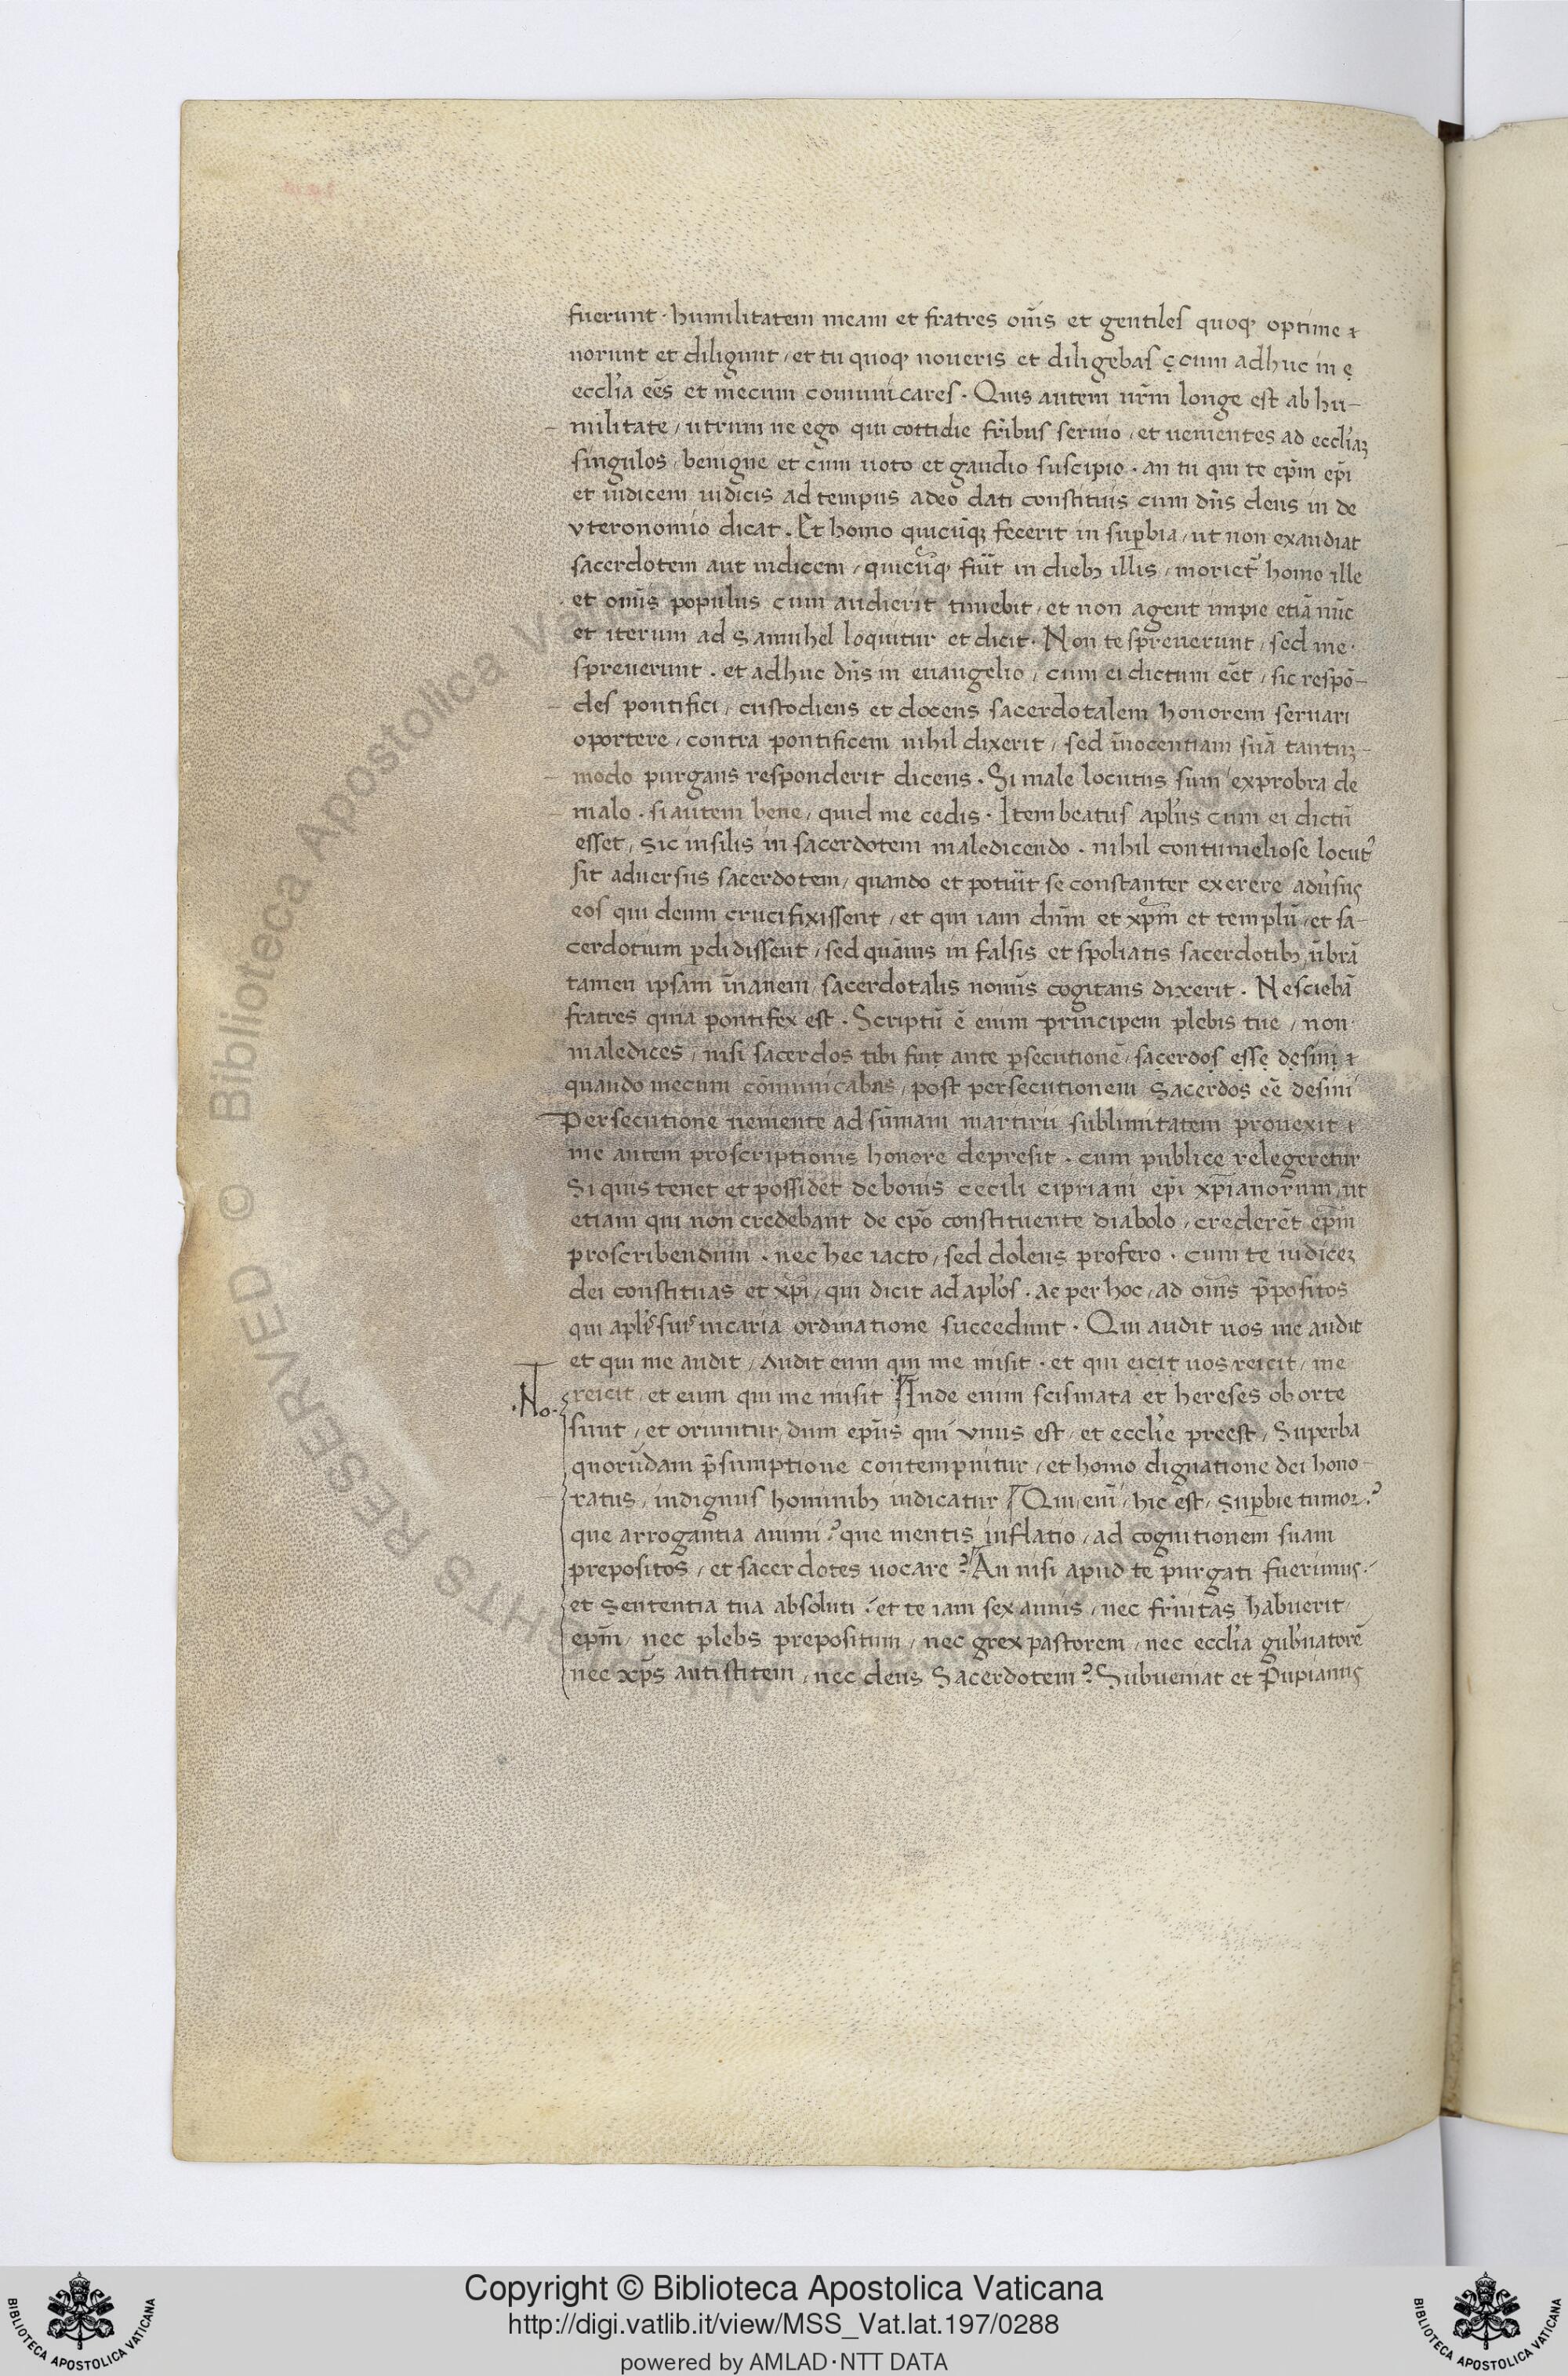 fuerunt · humilitatem meam et fratres om̄s et gentiles quoq optime
norunt et diligunt / et tu quoq noueris et diligebas cum adhuc in
eccl'ia eēs et mecum comunicares · Quis autem ur̄m longe est ab hu-
militate / utrum ne ego qui cottidie fr̄ibus seruio / et uenientes ad eccl'iaꝫ
singulos / benigne et cum uoto et gaudio suscipio · an tu qui te ep̄m ep̄i
et iudicem iudicis ad tempus adeo dati constituis cum dn̄s deus in de
vteronomio dicat · Et homo quicūqꝫ fecerit in suꝑbia / ut non exaudiat
sacerdotem aut iudicem / quicūq fūit in diebꝫ illis / moriet̄ homo ille
et om̄s populus cum audierit timebit / et non agent impie etiā nūc
et iterum ad Samuhel loquitur et dicit · Non te spreuerunt / sed me ·
spreuerunt · et adhuc dn̄s in euangelio / cum ei dictum eēt / sic respō-
des pontifici / custodiens et docens sacerdotalem honorem seruari
oportere / contra pontificem nihil dixerit / sed īnocentiam suā tantuꝫ-
modo purgans responderit dicens · Si male locutus sum exprobra de
malo · si autem bene / quid me cedis · Item beatus apl'us cum ei dictū
esset / sic insilis in sacerdotem maledicendo · nihil contumeliose locut᾽
sit aduersus sacerdotem / quando et potūit se constanter exerere adūsus
eos qui deum crucifixissent / et qui iam dn̄m et xp̄m et templū / et sa-
cerdotium ꝑdidissent / sed quāuis in falsis et spoliatis sacerdotibꝫ / ūbrā
tamen ipsam īnanem / sacerdotalis nom̄s cogitans dixerit · Nesciebā
fratres quia pontifex est · Scriptū ē enim principem plebis tue / non
maledices / nisi sacerdos tibi fui ante ꝑsecutionē / sacerdos esse desini
quando mecum cōmunicabas / post persecutionem Sacerdos eē desini
Persecutione ueniente ad sūmam martirii sublimitatem prouexit
me autem proscriptionis honore depresit · cum publice relegeretur
Si quis tenet et possidet de bonis cecili cipriani ep̄i xp̄ianorum / ut
etiam qui non credebant de ep̄o constituente diabolo / crederēt ep̄m
proscribendum · nec hec iacto / sed dolens profero · cum te iudiceꝫ
dei constituas et xp̄i / qui dicit ad apl'os · ac per hoc / ad om̄s p̄positos
qui apl'is sui uicaria ordinatione succedunt · Qui audit uos me audit
et qui me audit / audit eum qui me misit · et qui eicit uos reicit / me
·No· reicit / et eum qui me misit Inde enim scismata et hereses oborte
sunt / et oriuntur / dum ep̄us qui vnus est / et eccl'ie preest / Superba
quorūdam p̄sumptione contempnitur / et homo dignatione dei hono-
ratus / indignus hominibꝫ iudicatur Qui enī / hic est / Suꝑbie tumor?
que arrogantia animi? que mentis inflatio / ad cognitionem suam
prepositos / et sacerdotes uocare? An nisi apud te purgati fuerimus ·
et Sententia tua absoluti? et te iam sex annis / nec fr̄nitas habuerit
ep̄m / nec plebs prepositum / nec grex pastorem / nec eccl'ia gub'natorē
nec xp̄s antistitem / nec deus Sacerdotem? Subueniat et Pupianus
Biblioteca Apostolica Vaticana
ALL RIGHTS RESERVED ©
Copyright © Biblioteca Apostolica Vaticana
http://digi.vatlib.it/view/MSS_Vat.lat.197/0288
powered by AMLAD·NTT DATA
BIBLIOTECA APOSTOLICA VATICANA
BIBLIOTECA APOSTOLICA VATICANA